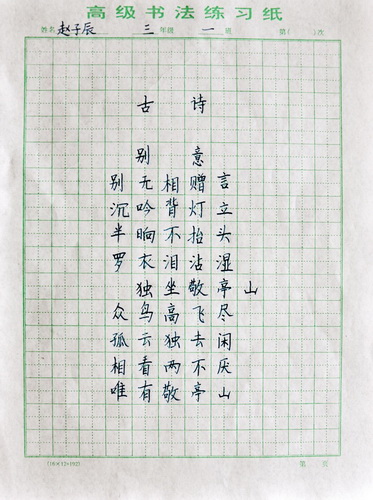 高级书法练习纸
姓名 赵子辰 三 年级 一 班 第( )次
古 诗
别 意
别无相赠言
沉吟背灯立
半晌不抬头
罗衣泪沾湿
独坐敬亭山
众鸟高飞尽
孤云独去闲
相看两不厌
唯有敬亭山
第 页